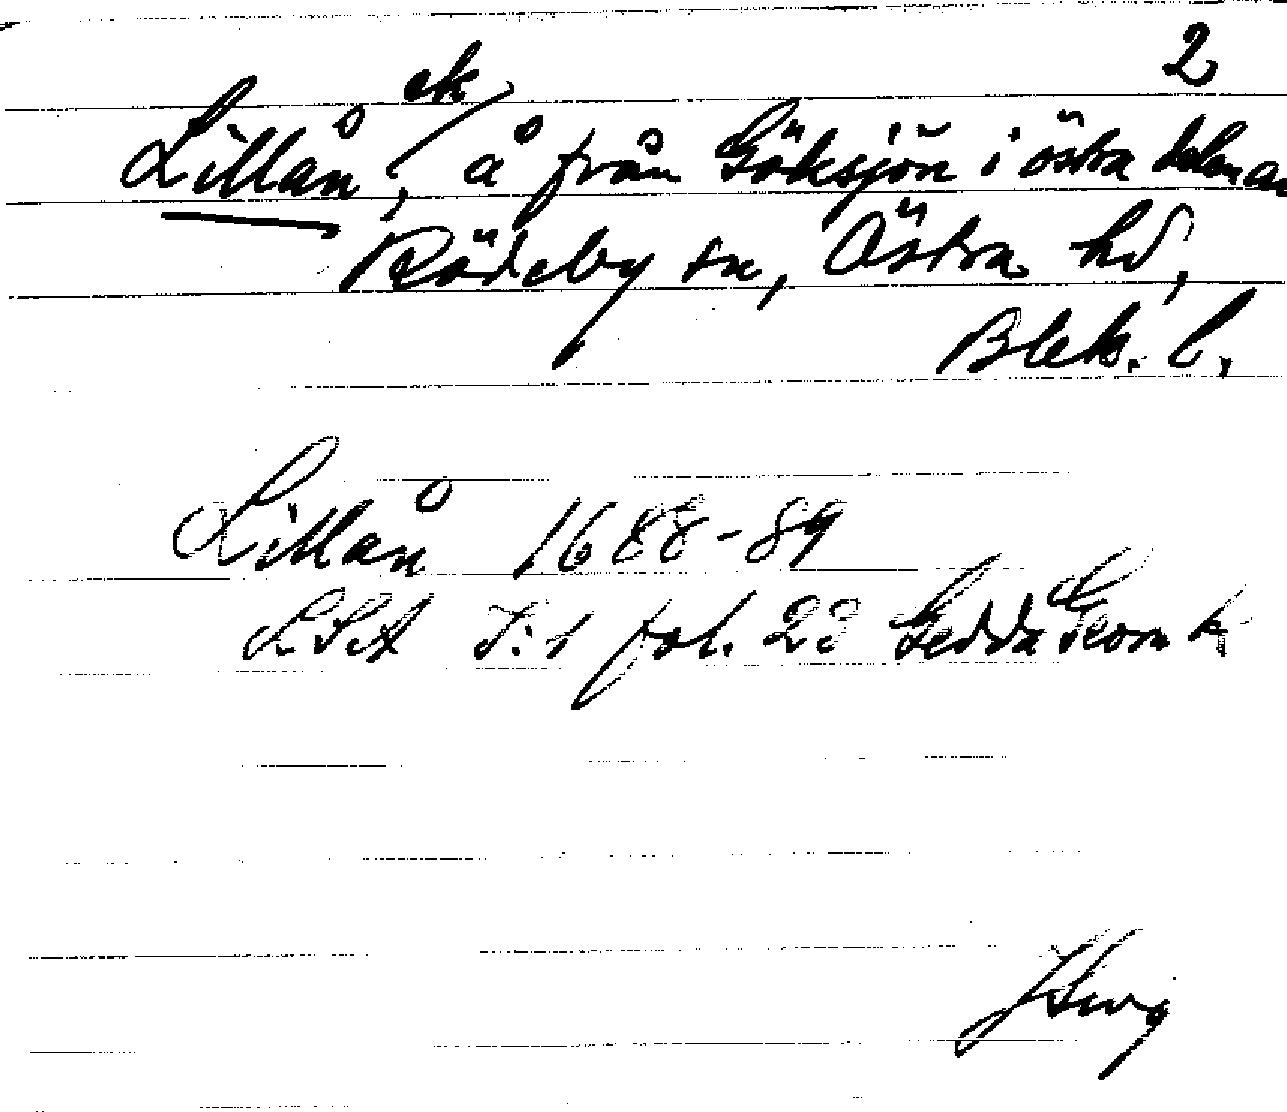 2
Lillån, ek å från Göksjön i östra delen av
Rödeby sn, Östra hd,
Blek. l.
Lillån 1688-89
LSA I:1 fol. 23 Gedda Geom k